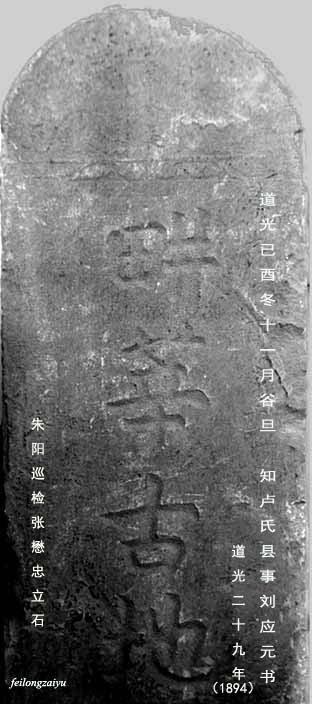 道光已酉冬十一月谷旦 知卢氏县事刘应元书
道光二十九年
(1894)
畊莘古地
朱阳巡检张懋忠立石
feilongzaiyu